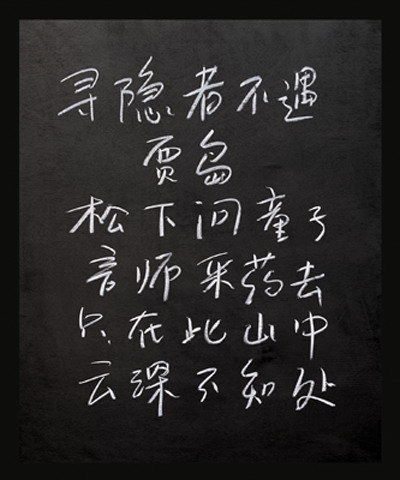 寻隐者不遇
贾岛
松下问童子
言师采药去
只在此山中
云深不知处